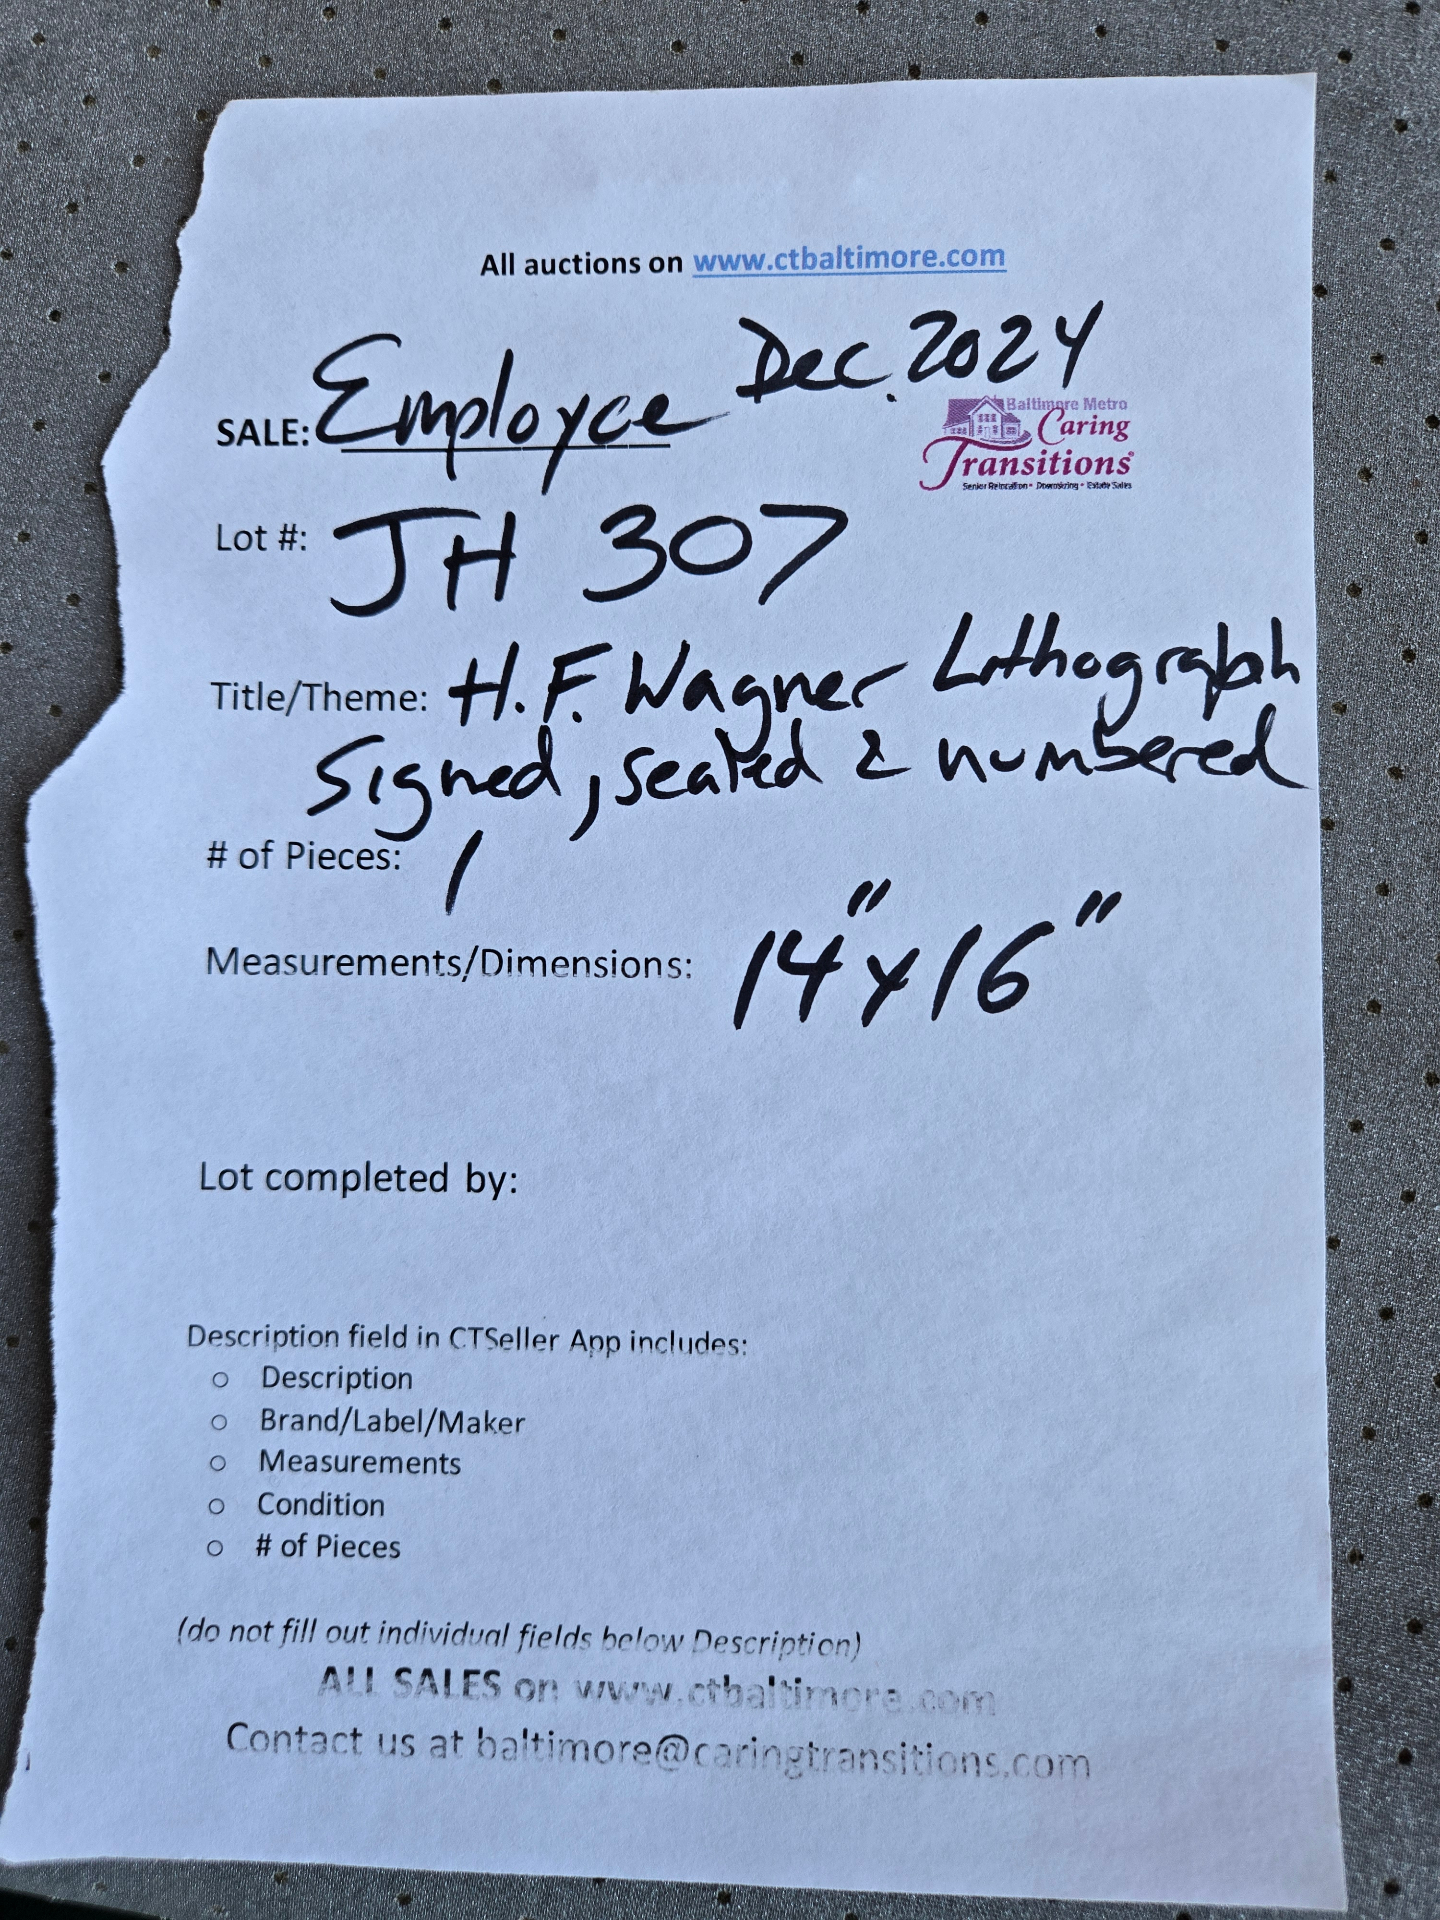 All auctions on www.ctbaltimore.com
SALE: Employee Dec. 2024
Baltimore Metro
Caring
Transitions
Senior Relocation • Downsizing • Estate Sales
Lot #: JH 307
Title/Theme: H.F. Wagner Lithograph
Signed, sealed & numbered
# of Pieces: 1
Measurements/Dimensions: 14" x 16"
Lot completed by:
Description field in CTSeller App includes:
○ Description
○ Brand/Label/Maker
○ Measurements
○ Condition
○ # of Pieces
(do not fill out individual fields below Description)
ALL SALES on www.ctbaltimore.com
Contact us at baltimore@caringtransitions.com